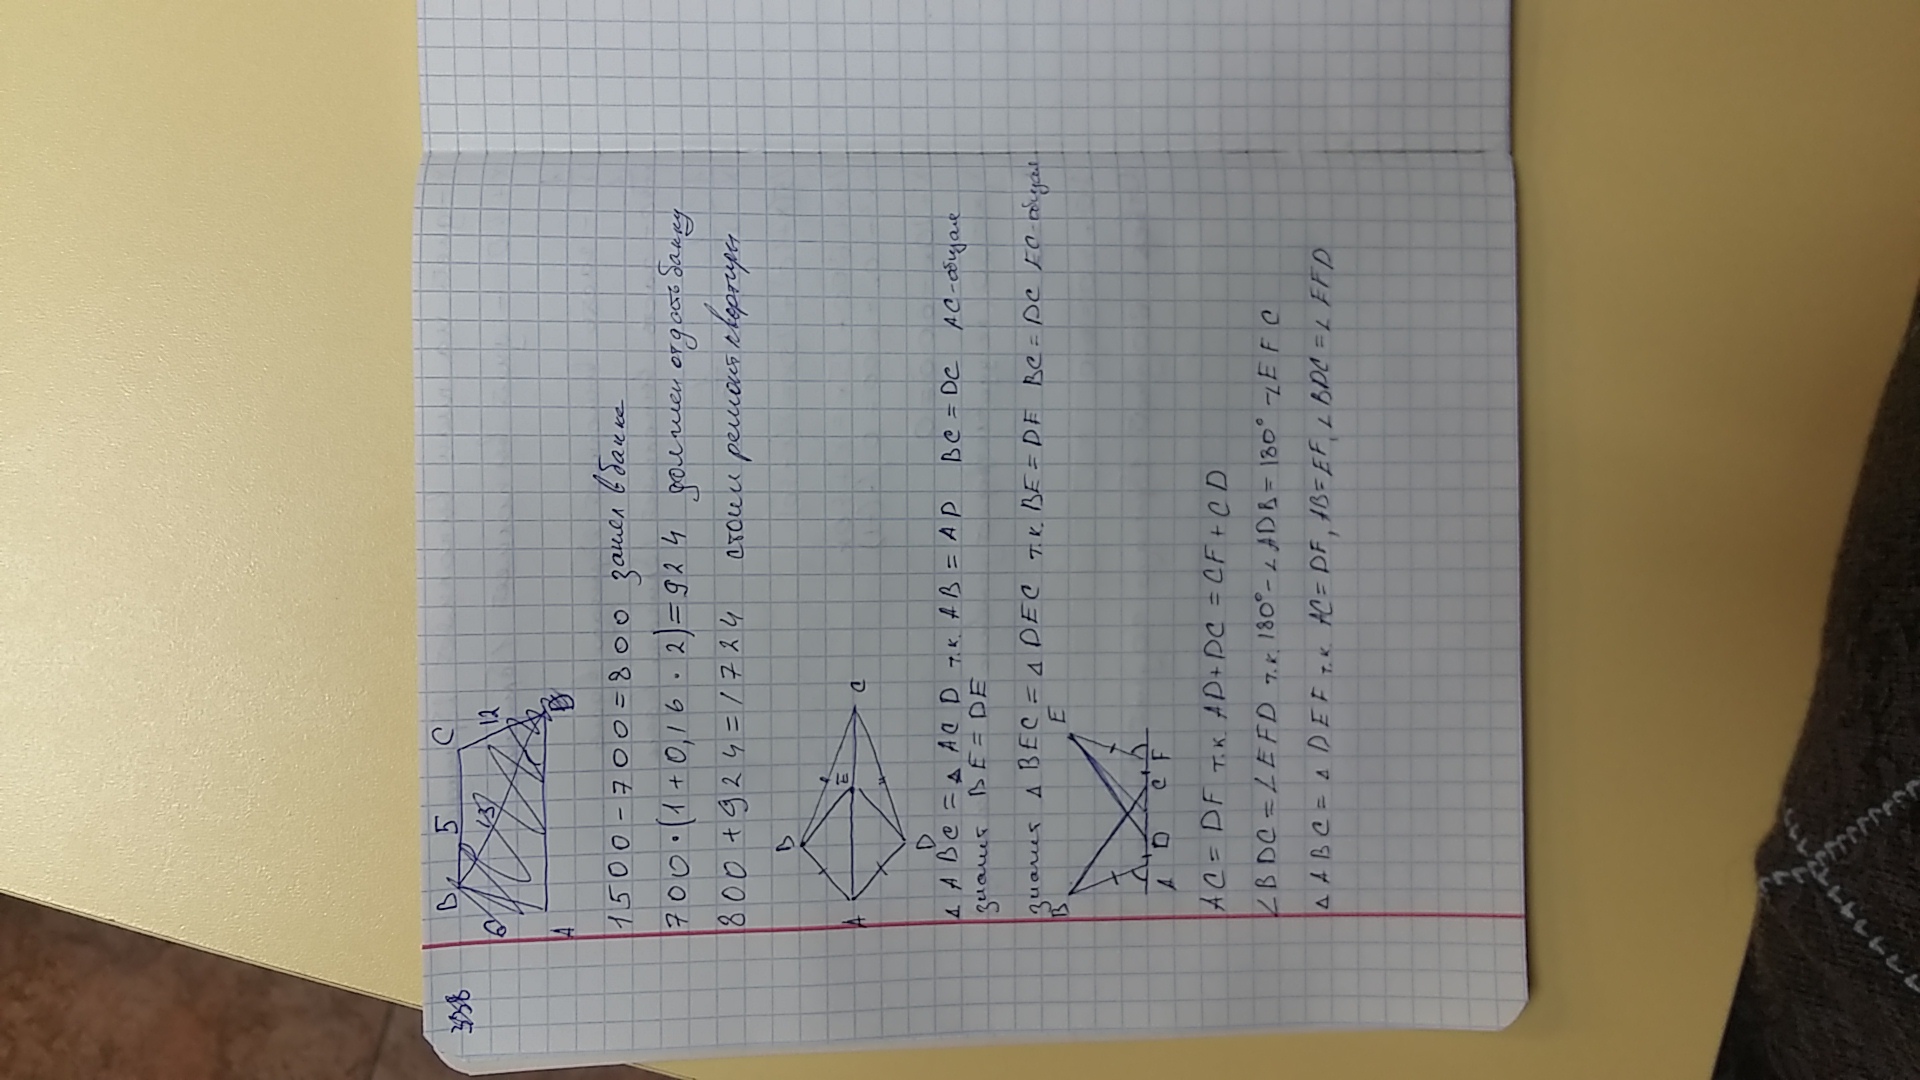 B 5 C
12
13
A
1500 - 700 = 800 занел в банке
700 · (1 + 0,16 · 2) = 924 должен отдать банку
800 + 924 = 1724 стоил ремонт квартиры
B
A E C
D
△ ABC = △ ACD т.к. AB = AD BC = DC AC - общая
Значит BE = DE
Значит △ BEC = △ DEC т.к. BE = DE BC = DC EC - общая
B E
A D C F
AC = DF т.к AD + DC = CF + CD
∠BDC = ∠EFD т.к. 180° - ∠ADB = 180° - ∠EFC
△ ABC = △ DEF т.к. AC = DF, AB = EF, ∠BDC = ∠EFD